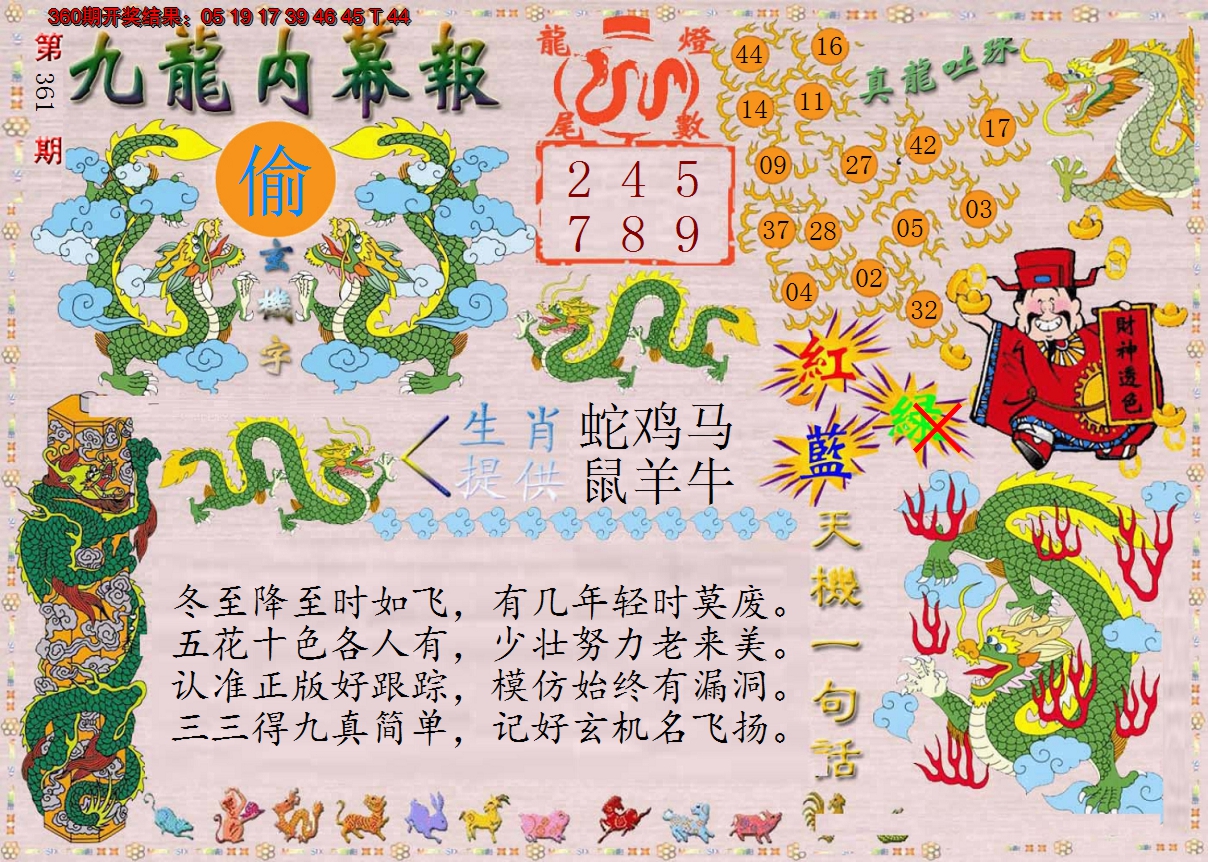 360期开奖结果：05 19 17 39 46 45 T 44
第361期
九龍内幕報
偷
玄機字
龍燈
尾數
2 4 5
7 8 9
真龍吐珠
44
16
14
11
17
42
09
27
03
37
28
05
02
04
32
紅
綠
藍
財神透色
生肖 蛇鸡马
提供 鼠羊牛
天機一句話
冬至降至时如飞，有几年轻时莫废。
五花十色各人有，少壮努力老来美。
认准正版好跟踪，模仿始终有漏洞。
三三得九真简单，记好玄机名飞扬。